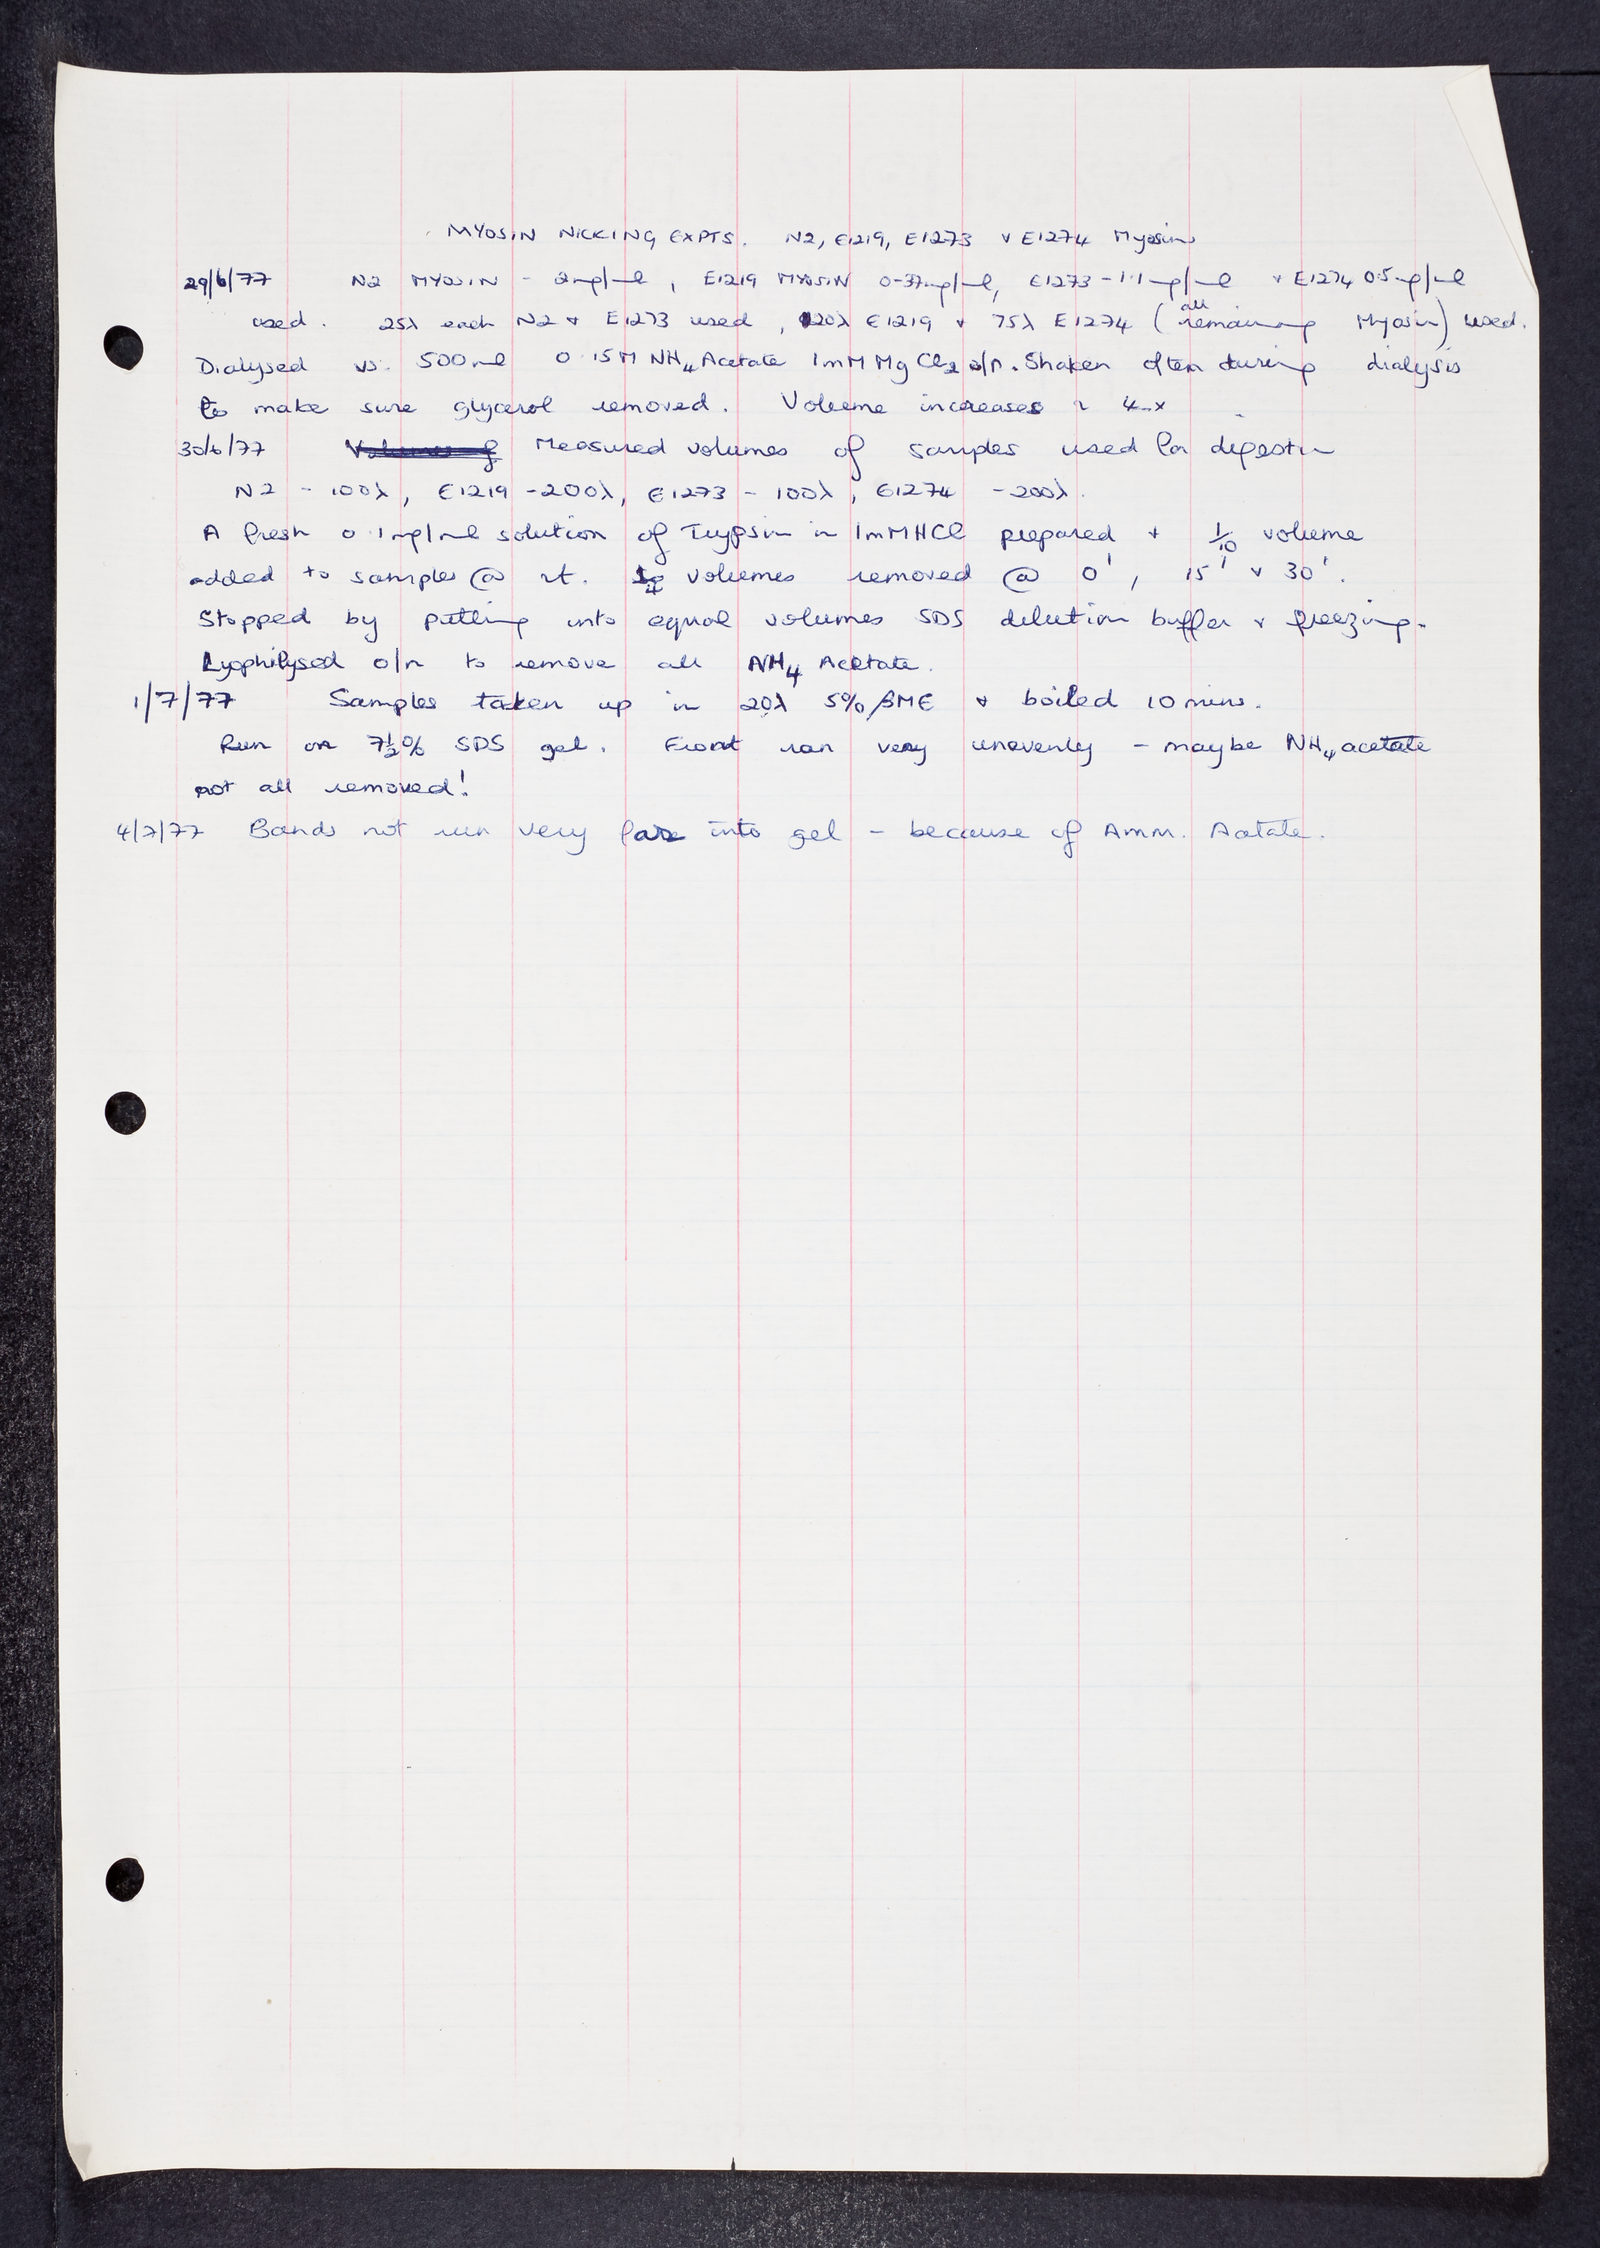 MYOSIN NICKING EXPTS. N2, E1219, E1273 & E1274 Myosins
29/6/77 N2 MYOSIN - 2mg/ml, E1219 MYOSIN 0·37mg/ml, E1273 - 1·1mg/ml & E1274 0·5mg/ml
used. 25λ each N2 & E1273 used, 120λ E1219 & 75λ E1274 (all remaining Myosin) used.
Dialysed vs. 500ml 0·15M NH4 Acetate 1mM MgCl2 o/n. Shaken often during dialysis
to make sure glycerol removed. Volume increases ~ 4-x
30/6/77 Volumes of Measured volumes of samples used for digestion
N2 - 100λ, E1219 - 200λ, E1273 - 100λ, E1274 - 200λ.
A fresh 0·1mg/ml solution of Trypsin in 1mM HCl prepared & 1/10 volume
added to samples @ rt. 1/4 volumes removed @ 0', 15' & 30'.
Stopped by putting into equal volumes SDS dilution buffer & freezing.
Lyophilysed o/n to remove all NH4 Acetate.
1/7/77 Samples taken up in 20λ 5% βME & boiled 10 mins.
Run on 7½% SDS gel. Front ran very unevenly - maybe NH4 acetate
not all removed!
4/7/77 Bands not run very far into gel - because of Amm. Acetate.